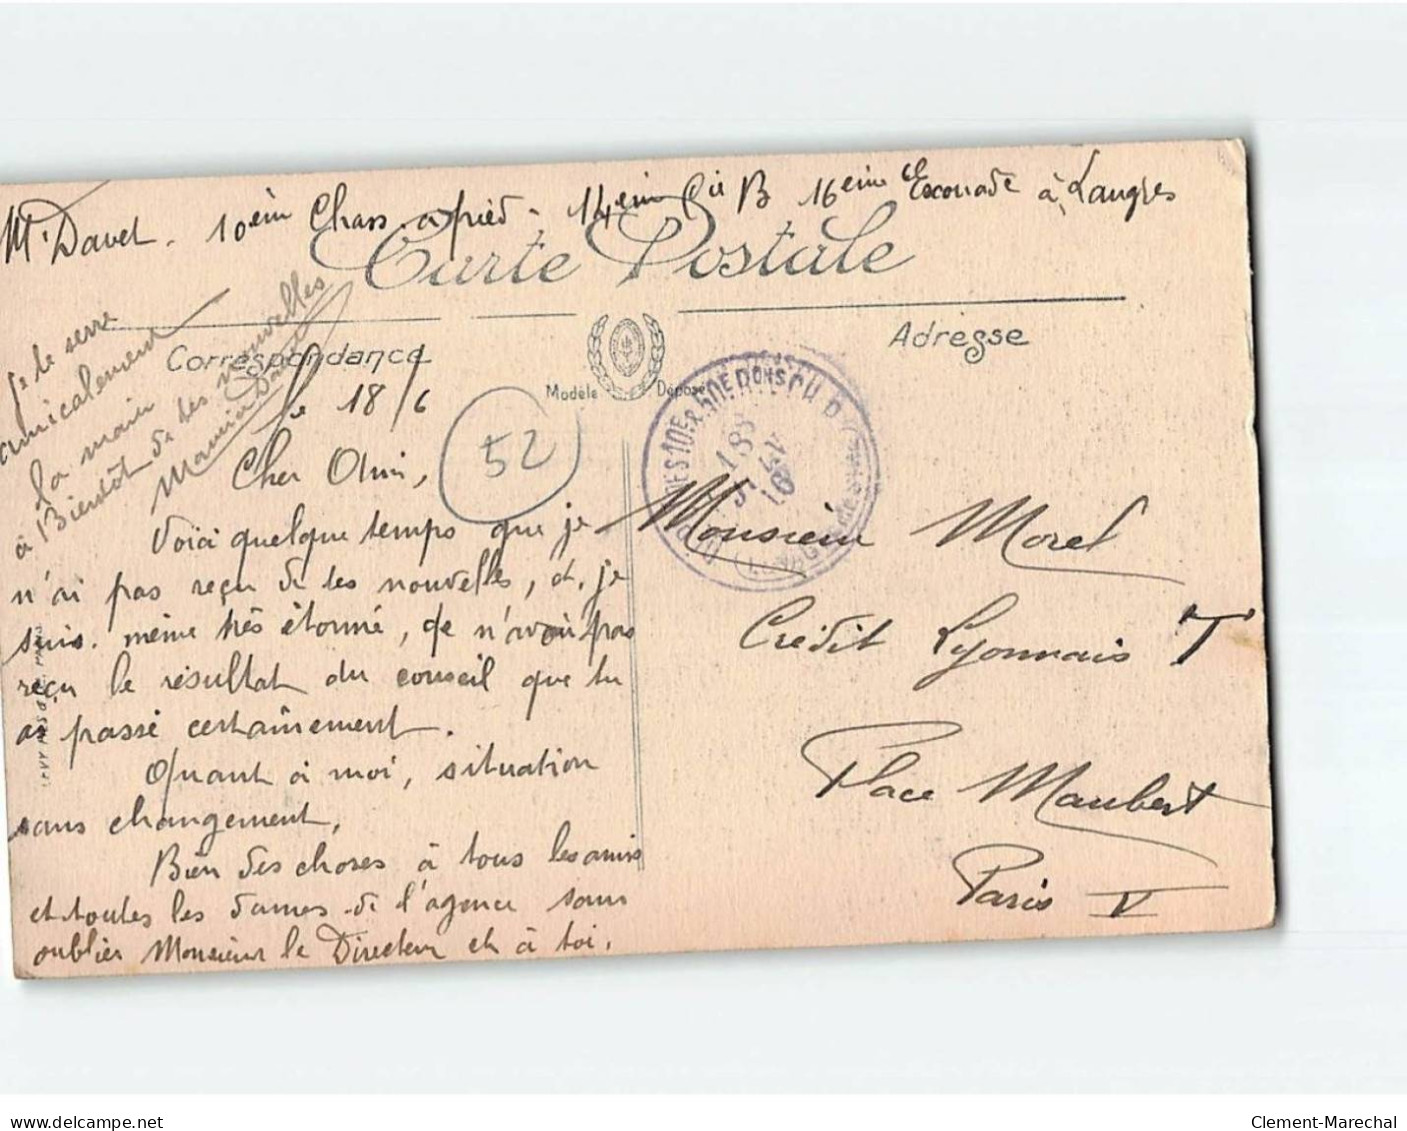 Mr Davet. 10èm Chass. à pied - 14èm Cie B 16eim Escouade à Langres
Carte Postale
Correspondance
Adresse
Modèle Déposé
le 18/6
52
Cher Ami,
Voici quelque temps que je
n'ai pas reçu de tes nouvelles, et, je
suis même très étonné, de n'avoir pas
reçu le résultat du conseil que tu
as passé certainement.
Quant à moi, situation
sans changement,
Bien des choses à tous les amis
et toutes les dames de l'agence sans
oublier Monsieur le Directeur et à toi,
Je te serre
amicalement
la main
à Bientôt de tes nouvelles
Maurice Davet
Monsieur Morel
Crédit Lyonnais T
Place Maubert
Paris V
Clement-Marechal